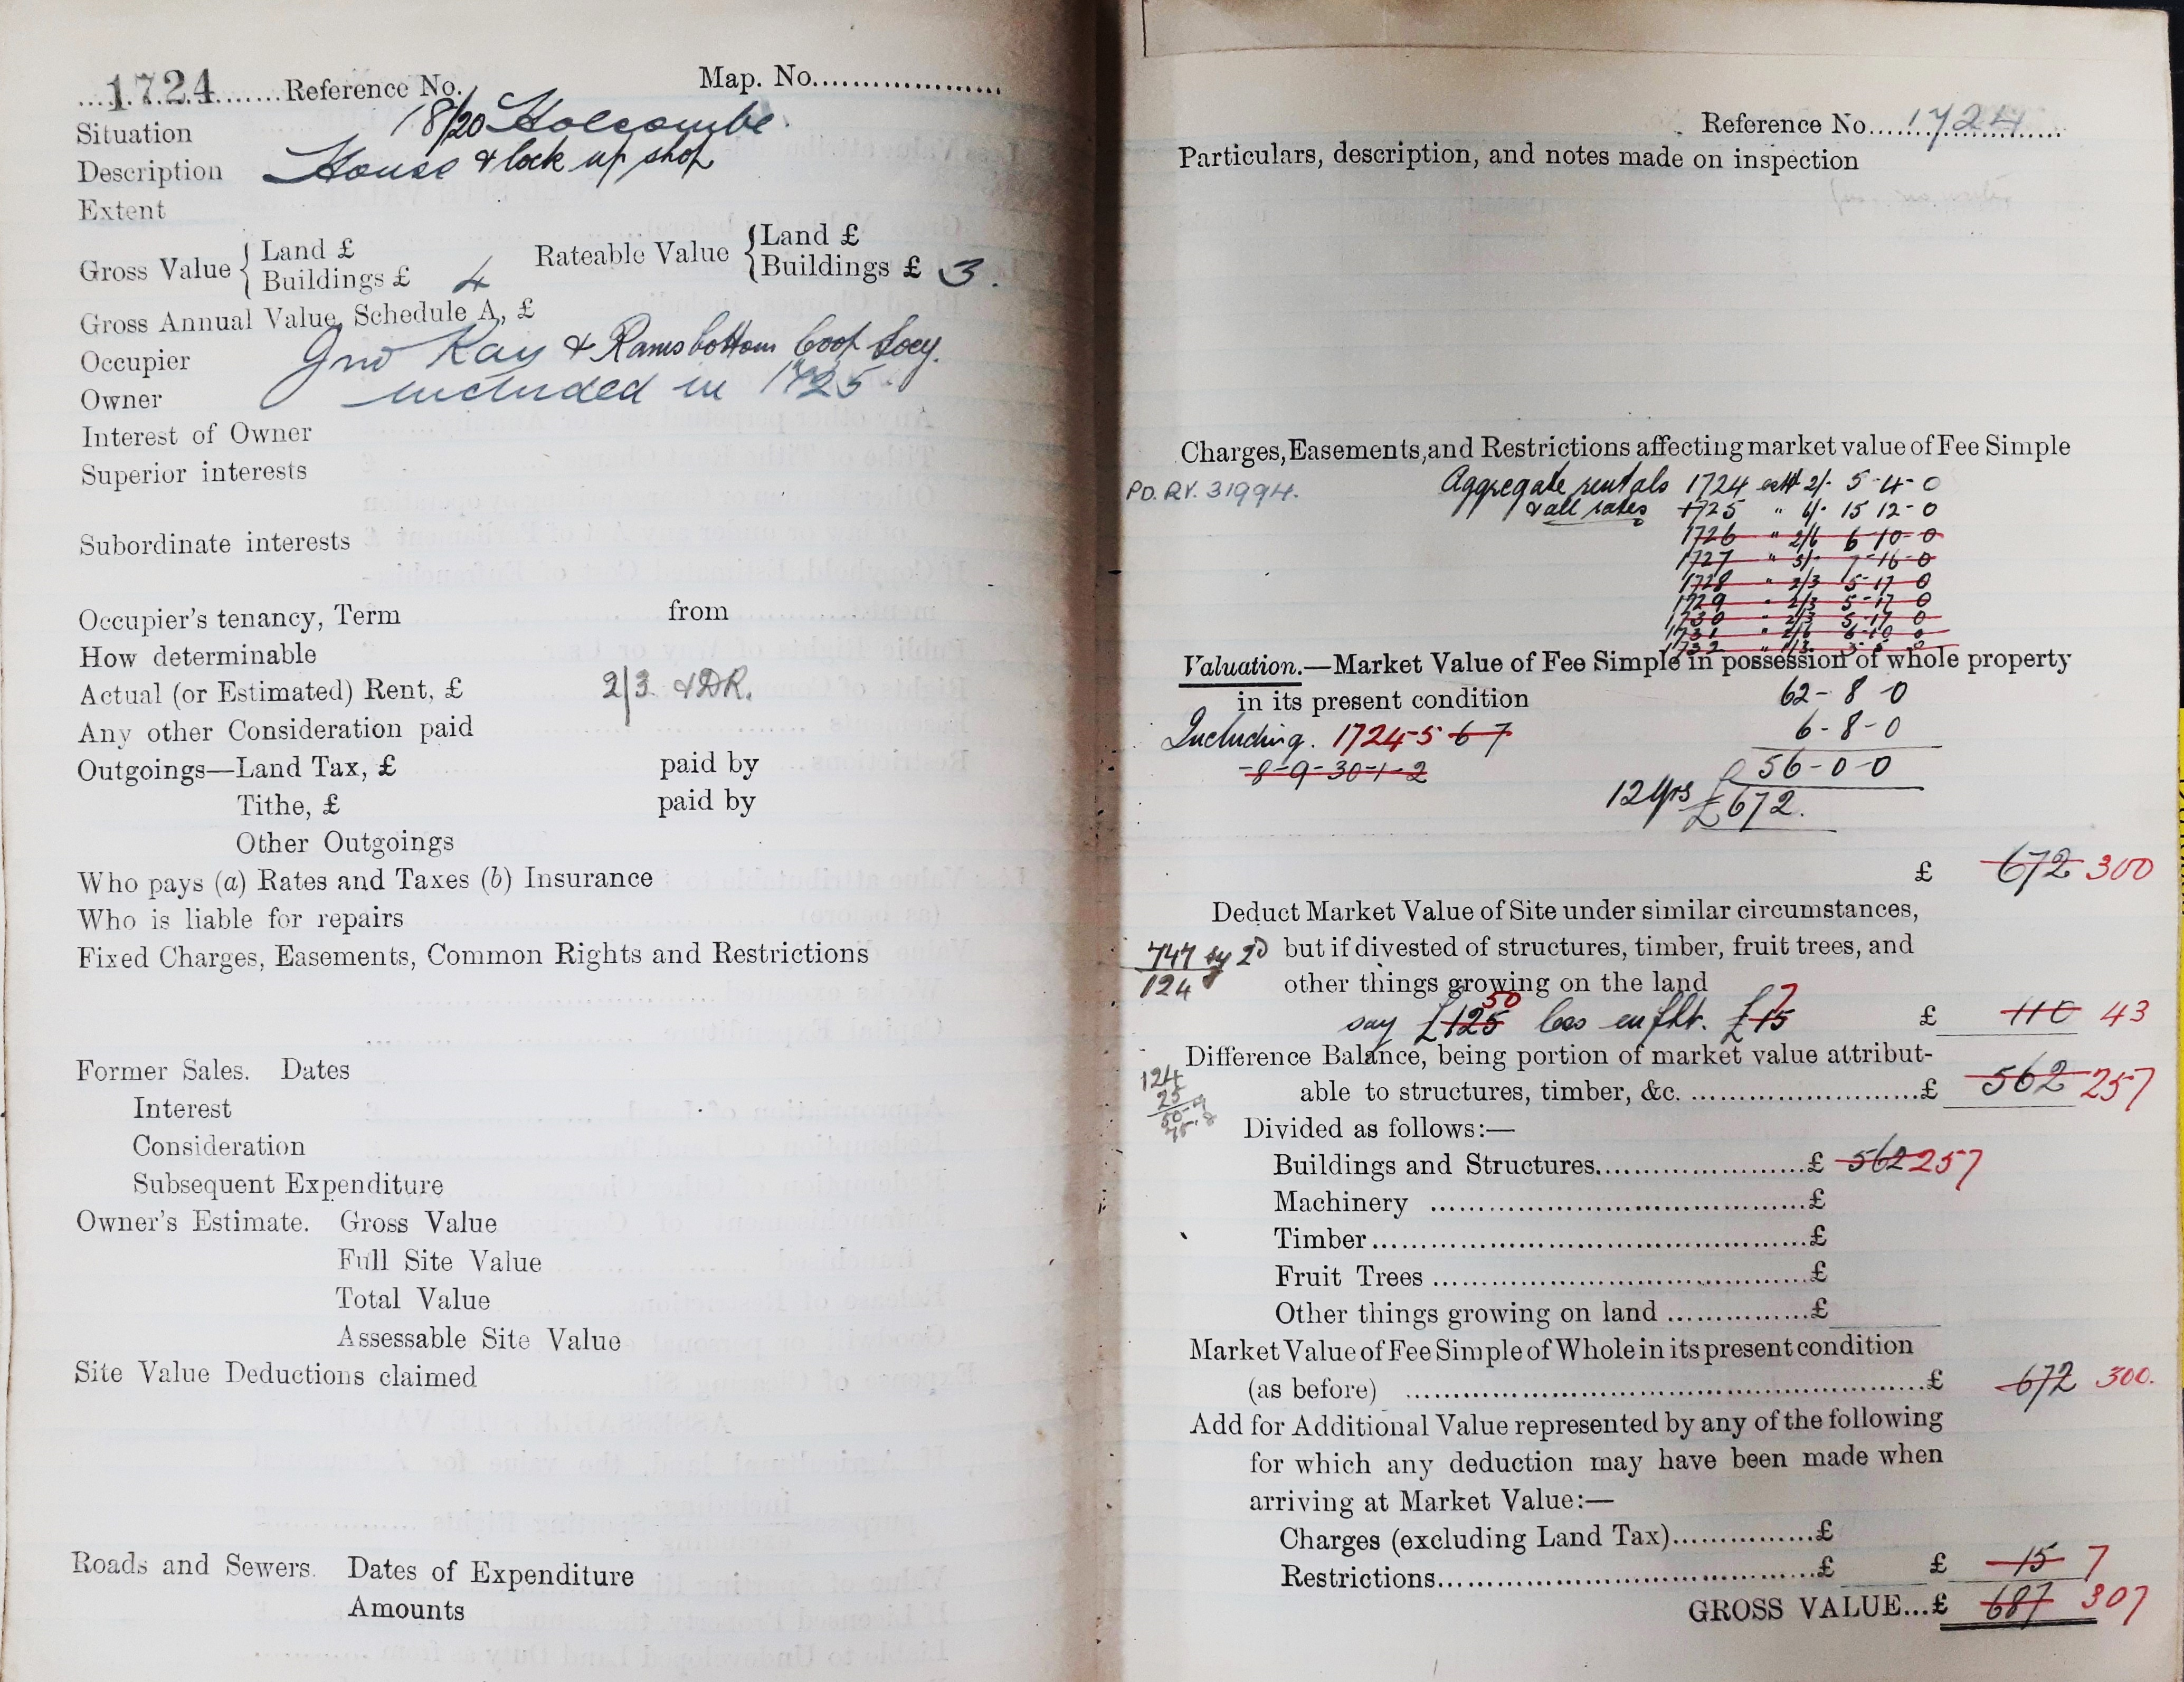 1724 Reference No. Map. No.
Situation 18/20 Holcombe.
Description House & lock up shop
Extent
Gross Value { Land £ Rateable Value { Land £
Buildings £ 4 Buildings £ 3.
Gross Annual Value, Schedule A, £
Occupier Jno Kay & Ramsbottom Coop Socy.
Owner included in 1725
Interest of Owner
Superior interests
Subordinate interests
Occupier's tenancy, Term from
How determinable
Actual (or Estimated) Rent, £ 2/3 & DR.
Any other Consideration paid
Outgoings—Land Tax, £ paid by
Tithe, £ paid by
Other Outgoings
Who pays (a) Rates and Taxes (b) Insurance
Who is liable for repairs
Fixed Charges, Easements, Common Rights and Restrictions
Former Sales. Dates
Interest
Consideration
Subsequent Expenditure
Owner's Estimate. Gross Value
Full Site Value
Total Value
Assessable Site Value
Site Value Deductions claimed
Roads and Sewers. Dates of Expenditure
Amounts
Reference No. 1724
Particulars, description, and notes made on inspection
Charges, Easements, and Restrictions affecting market value of Fee Simple
PD. RV. 31994. Aggregate rentals 1724 2/- 5-4-0
& all rates 1725 " 6/- 15 12-0
1726 " 2/6 6-10-0
1727 " 3/- 7-16-0
1728 " 2/3 5-17 0
1729 " 2/3 5-17 0
1730 " 2/3 5-17 0
1731 " 2/6 6-10 0
1732 " 1/3
Valuation.—Market Value of Fee Simple in possession of whole property
in its present condition 62-8-0
Including. 1724-5-6-7 6-8-0
-8-9-30-1-2 56-0-0
12 Yrs £672.
£ 672 300
Deduct Market Value of Site under similar circumstances,
747 by 2D but if divested of structures, timber, fruit trees, and
124 other things growing on the land
50 7
say £125 less enfht. £15 £ 110 43
Difference Balance, being portion of market value attribut-
124
25 able to structures, timber, &c. £ 562 257
Divided as follows:—
Buildings and Structures £ 562 257
Machinery £
Timber £
Fruit Trees £
Other things growing on land £
Market Value of Fee Simple of Whole in its present condition
(as before) £ 672 300.
Add for Additional Value represented by any of the following
for which any deduction may have been made when
arriving at Market Value:—
Charges (excluding Land Tax) £
Restrictions £ £ 15 7
GROSS VALUE...£ 687 307